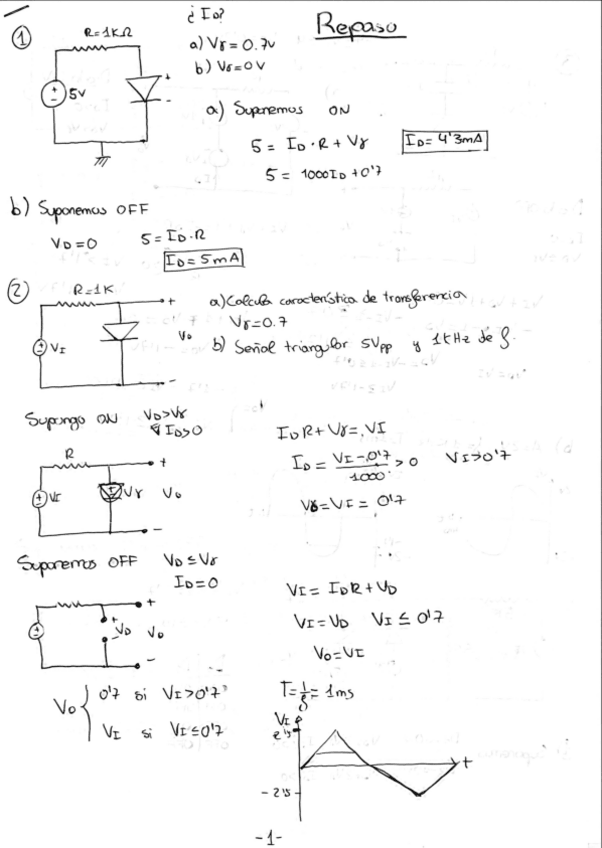 Repaso
①
R=1KΩ
5V
+
-
¿ID?
a) Vγ = 0.7V
b) Vγ = 0V
a) Suponemos ON
5 = ID · R + Vγ
ID = 4'3mA
5 = 1000ID + 0'7
b) Suponemos OFF
VD = 0
5 = ID · R
ID = 5mA
②
R=1K
VI
+
Vo
-
a) Calcula característica de transferencia
Vγ = 0.7
b) Señal triangular 5Vpp y 1kHz de f.
Supongo ON VD > Vγ
ID > 0
ID R + Vγ = VI
R
VI
Vγ
+
Vo
-
ID = (VI - 0'7)/1000 > 0 VI > 0'7
Vγ = VI = 0'7
Suponemos OFF VD ≤ Vγ
ID = 0
+
VD
-
+
Vo
-
VI = ID R + VD
VI = VD VI ≤ 0'7
Vo = VI
Vo { 0'7 si VI > 0'7
VI si VI ≤ 0'7
T = 1/f = 1ms
VI
2'5
t
-2'5
-1-